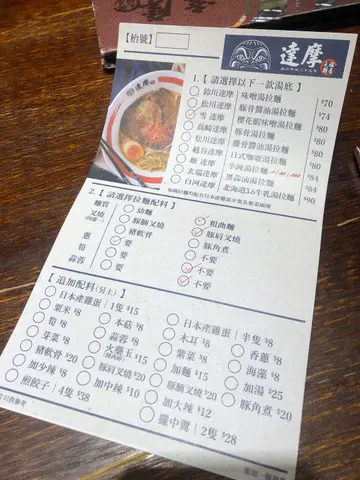 【枱號】
達摩
1.【請選擇以下一款湯底】
鈴川達摩｜味噌湯拉麵 $70
松川達摩｜豚骨醬油湯拉麵 $74
雪 達摩｜櫻花蝦味噌湯拉麵
高崎達摩｜豚骨湯拉麵
松川達摩｜雞骨醬油湯拉麵
越谷達摩｜日式咖喱湯拉麵
姬 達摩｜辛辣湯拉麵
玄瑞達摩｜黑蒜油湯拉麵 $84
白河達摩｜北海道3.6牛乳湯拉麵 $90
2.【請選擇拉麵配料】
麵質 幼麵 粗曲麵
叉燒 豚腩叉燒 豚肩叉燒
豬軟骨 豚角煮
蔥 要 不要
筍 要 不要
蒜蓉 要 不要
【追加配料(另上)】
日本產雞蛋｜1隻 $15 日本產雞蛋｜半隻 $8
粟米 $8 本菇 $8 木耳 $8 香蔥 $8
筍 $8 蒜蓉 $8 紫菜 $8 海藻 $8
芽菜 $8 火樂玉 $15 加麵 $15 加湯 $25
豬軟骨 $20 豚肩叉燒 $20 豚腩叉燒 $20 豚角煮 $20
加少辣 $8 加中辣 $10 加大辣 $12
煎餃子｜4隻 $38 雞中翼｜2隻 $28